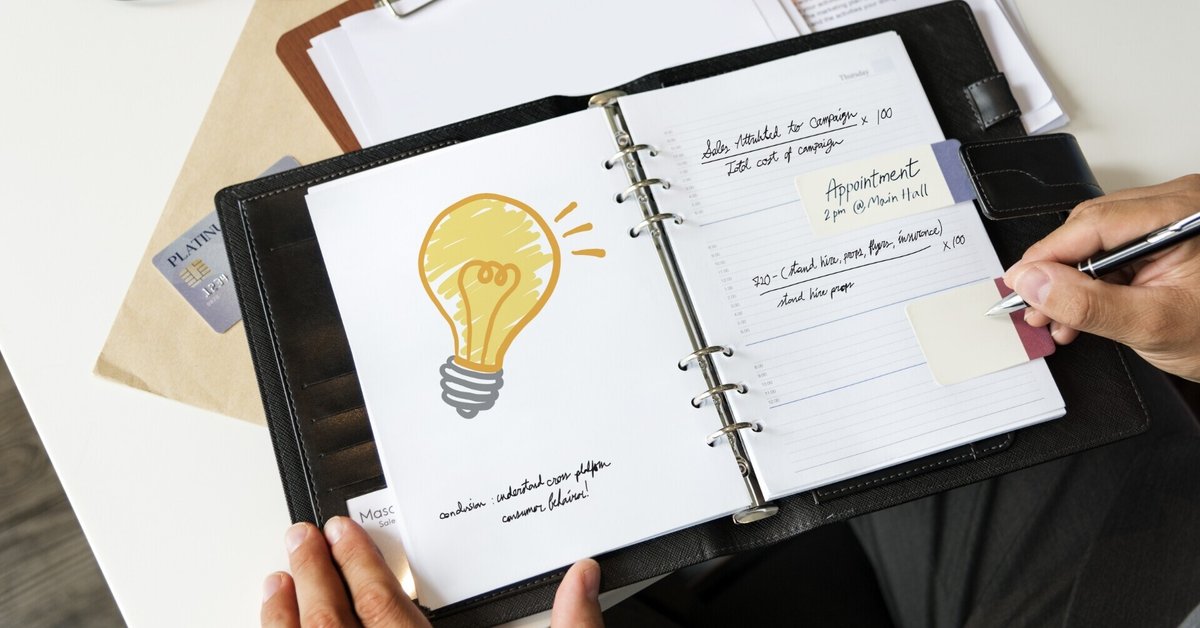 PLATINU
conclusion : understand cross platform
consumer behavior!
Masc
Sale
Thursday
Sales Attributed to Campaign x 100
Total cost of campaign
Appointment
2 pm @ Main Hall
720 - (stand hire, props, flyers, insurance) x 100
stand hire props